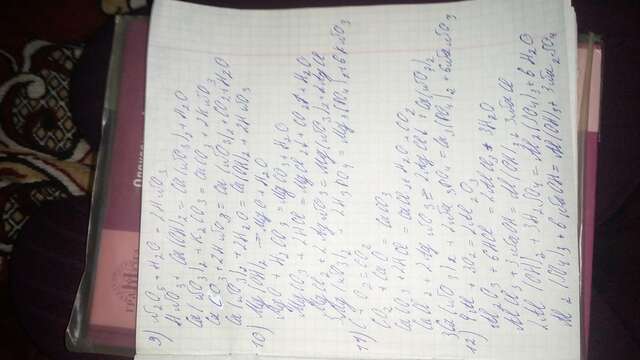 9) N2O5 + H2O = 2HNO3
HNO3 + Ca(OH)2 = Ca(NO3)2 + H2O
Ca(NO3)2 + K2CO3 = CaCO3 + 2KNO3
CaCO3 + 2HNO3 = Ca(NO3)2 + CO2 + H2O
Ca(NO3)2 + 2H2O = Ca(OH)2 + 2HNO3
10) Mg(OH)2 = MgO + H2O
MgO + H2CO3 = MgCO3 + H2O
MgCO3 + 2HCl = MgCl2 + CO2 + H2O
MgCl2 + 2AgNO3 = Mg(NO3)2 + 2AgCl
11) C + O2 = CO2
CO2 + CaO = CaCO3
CaCO3 + 2HCl = CaCl2 + H2O + CO2
CaCl2 + 2AgNO3 = 2AgCl + Ca(NO3)2
3Ca(NO3)2 + 2Na3PO4 = Ca3(PO4)2 + 6NaNO3
12) 4Al + 3O2 = 2Al2O3
Al2O3 + 6HCl = 2AlCl3 + 3H2O
AlCl3 + 3NaOH = Al(OH)3 + 3NaCl